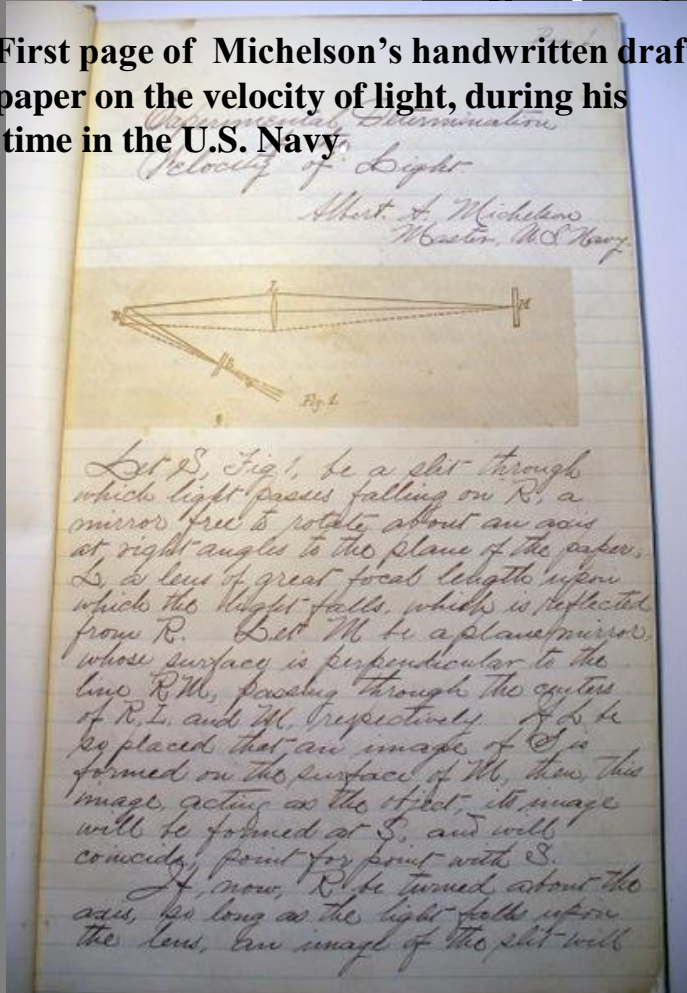 First page of Michelson's handwritten draf
paper on the velocity of light, during his
time in the U.S. Navy
Experimental Determination
Velocity of Light.
Albert. A. Michelson
Master, U.S. Navy.
L
M
R
S
Fig 1.
Let S, Fig 1, be a slit through
which light passes falling on R, a
mirror free to rotate about an axis
at right angles to the plane of the paper,
L, a lens of great focal length upon
which the light falls, which is reflected
from R. Let M be a plane mirror,
whose surface is perpendicular to the
line R.M, passing through the centers
of R, L. and M, respectively. If L be
so placed that an image of S is
formed on the surface of M, then, this
image, acting as the object, its image
will be formed at S, and will
coincide, point for point with S.
If, now, R be turned about the
axis, so long as the light falls upon
the lens, an image of the slit will